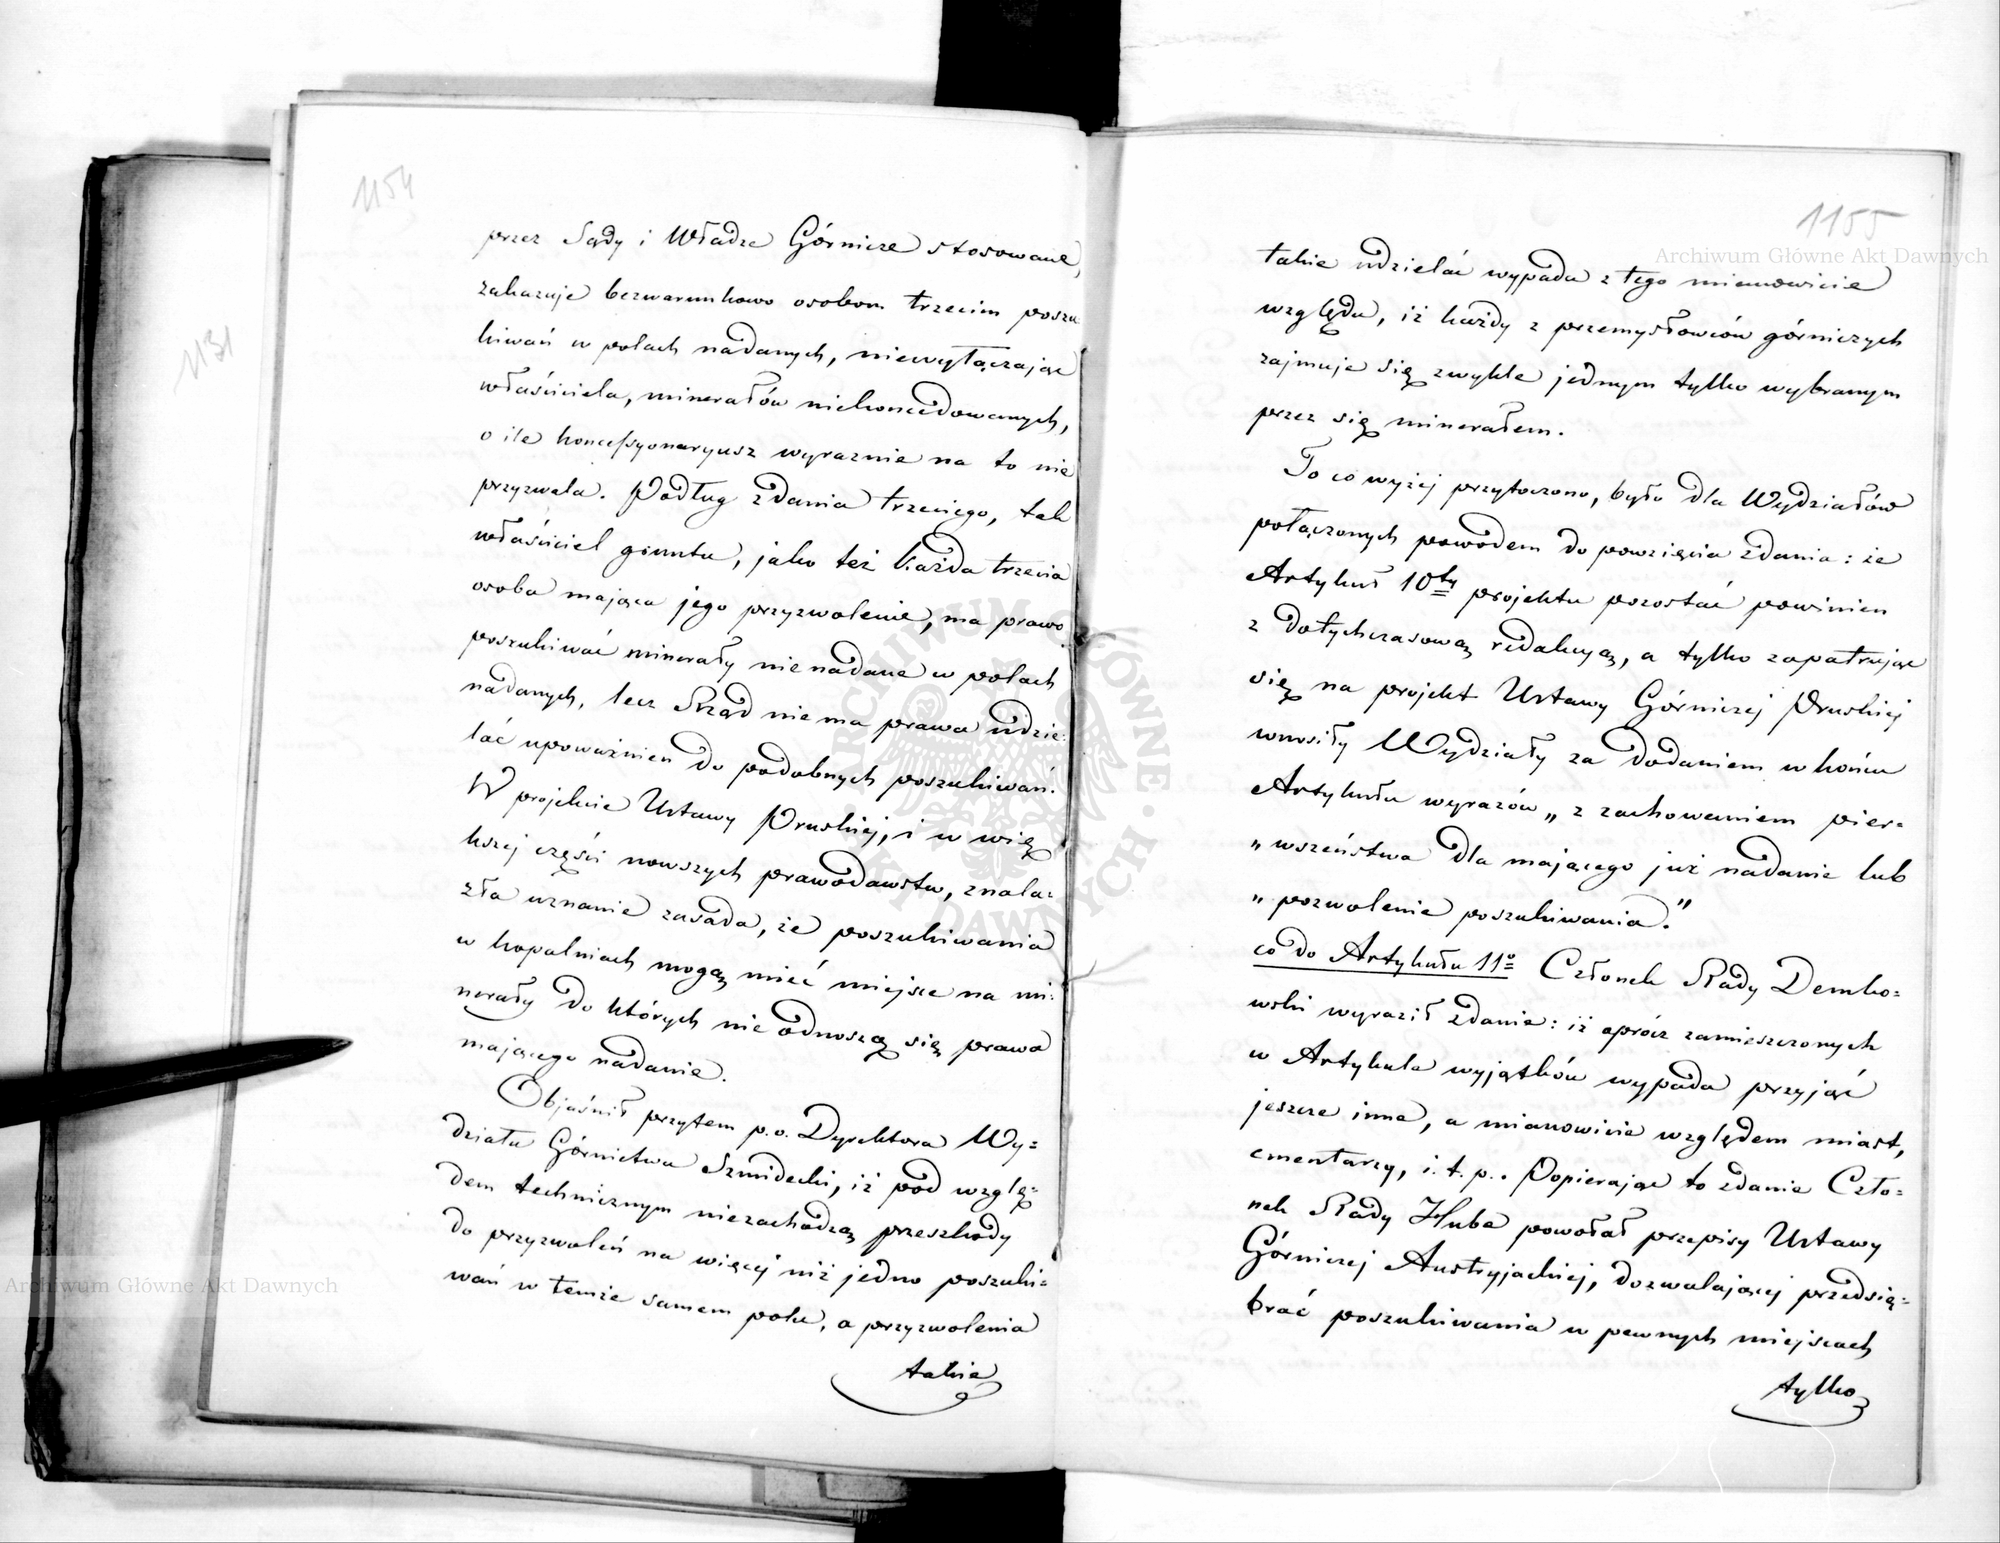 1154
przez Sądy i Władze Górnicze stosowane,
zakazuje bezwarunkowo osobom trzecim poszu
kiwań w polach nadanych, niewyłączając
właściciela, minerałów niekoncedowanych,
o ile koncessyonaryusz wyraznie na to nie
przyzwala. Podług zdania trzeciego, tak
właściciel gruntu, jako też każda trzecia
osoba mająca jego przyzwolenie, ma prawo
poszukiwać minerały nienadane w polach
nadanych, lecz Rząd nie ma prawa udzie:
lać upoważnień do podobnych poszukiwań.
W projekcie Ustawy Pruskiej, i w wię
kszej części nowszych prawodawstw, znala:
zła uznanie zasada, że poszukiwania
w kopalniach mogą mieć miejsce na mi:
nerały do których nie odnoszą się prawa
mającego nadanie.
Objaśnił przytem p.o. Dyrektora Wy=
działu Górnictwa Szmidecki, iż pod wzglę=
dem technicznym niezachodzą przeszkody
do przyzwoleń na więcej niż jedno poszuki=
wań w temże samem polu, a przyzwolenia
takie
1131
1155
takie udzielać wypada z tego mianowicie
względu, iż każdy z przemysłowców górniczych
zajmuje się zwykle jednym tylko wybranym
przez się minerałem.
To co wyżej przytoczono, było dla Wydziałów
połączonych powodem do powzięcia zdania: że
Artykuł 10ty projektu pozostać powinien
z dotychczasową redakcyą, a tylko zapatrując
się na projekt Ustawy Górniczej Pruskiej
wnosiły Wydziały za dodaniem w końcu
Artykułu wyrazów „z zachowaniem pier=
„wszeństwa dla mającego już nadanie lub
„pozwolenie poszukiwania."
co do Artykułu 11o Członek Rady Dembo=
wski wyraził zdanie: iż oprócz zamieszczonych
w Artykule wyjątków wypada przyjąć
jeszcze inne, a mianowicie względem miast,
cmentarzy, i. t. p.. Popierając to zdanie Czło=
nek Rady Hube powołał przepisy Ustawy
Górniczej Austryjackiej, dozwalającej przedsię=
brać poszukiwania w pewnych miejscach
tylko
Archiwum Główne Akt Dawnych
Archiwum Główne Akt Dawnych
ARCHIWUM GŁÓWNE AKT DAWNYCH